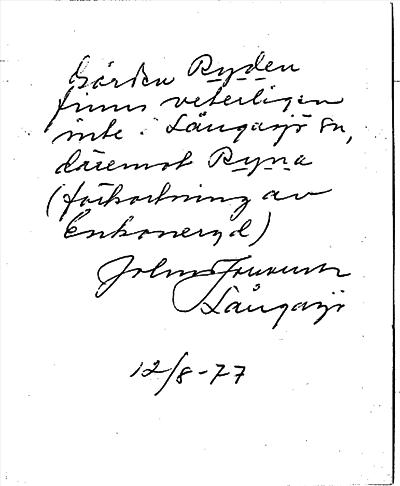 Gården Ryden
finns veterligen
inte i Långasjö sn,
däremot Ryna
(förkortning av
Enkoneryd)
John Johansson
Långasjö
12/8-77